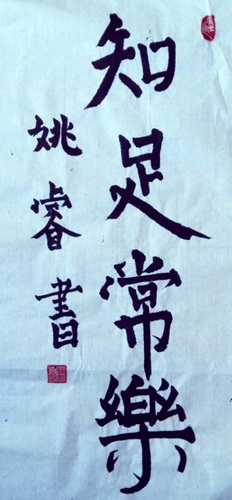 知足常樂
姚睿書